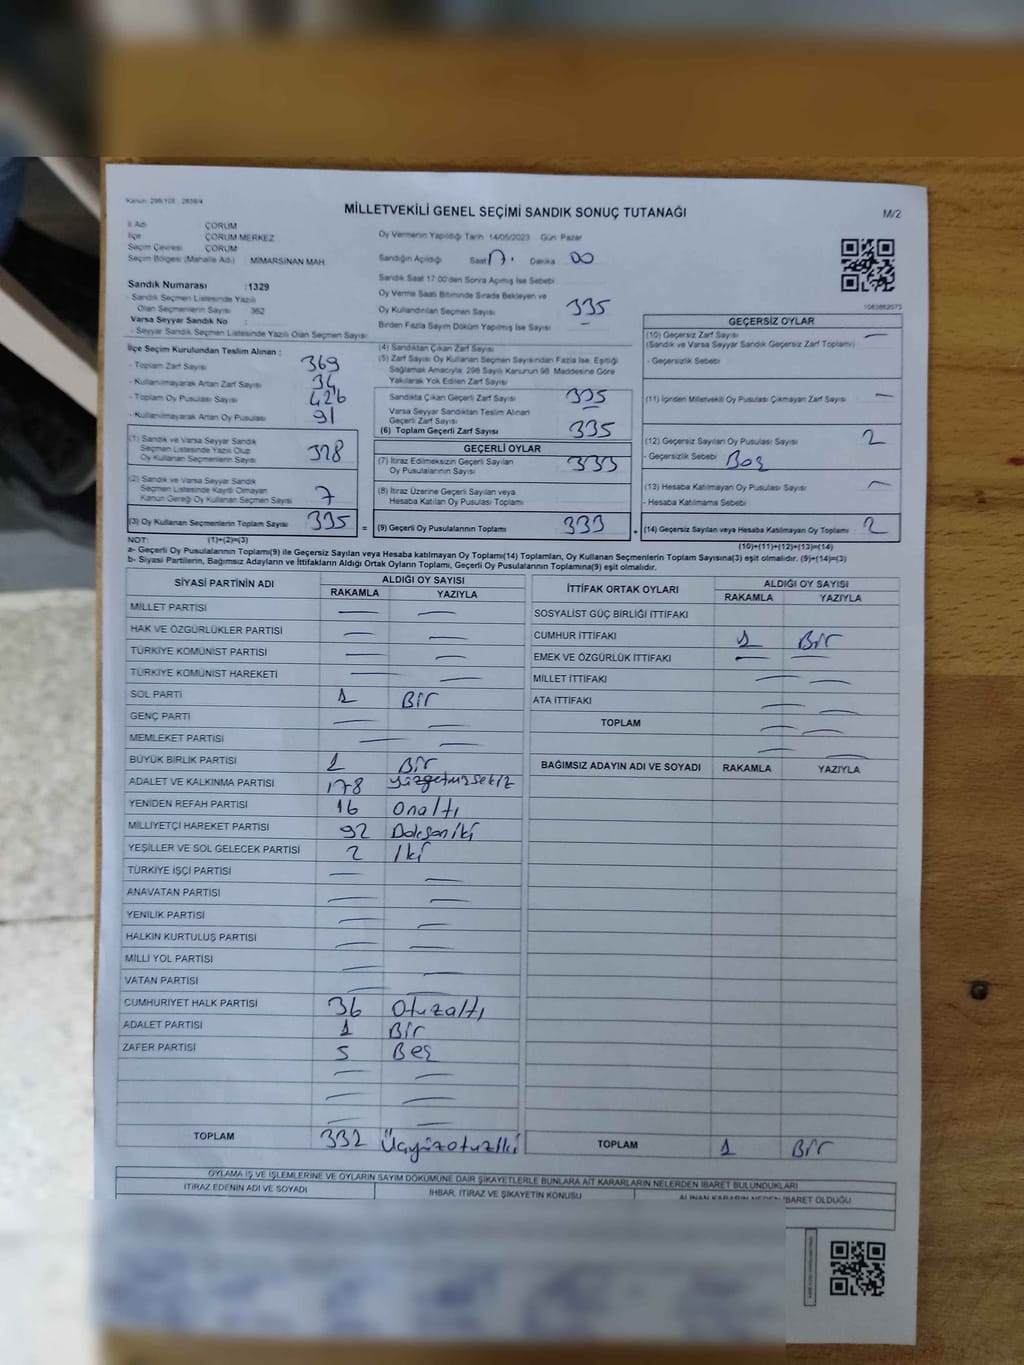 Kanun: 298/105 , 2839/4
MİLLETVEKİLİ GENEL SEÇİMİ SANDIK SONUÇ TUTANAĞI
M/2
İl Adı ÇORUM
İlçe ÇORUM MERKEZ
Seçim Çevresi ÇORUM
Seçim Bölgesi (Mahalle Adı) MİMARSİNAN MAH.
Oy Vermenin Yapıldığı Tarih 14/05/2023 Gün: Pazar
Sandığın Açıldığı Saat 17. Dakika 00
Sandık Saat 17:00'den Sonra Açılmış İse Sebebi
Oy Verme Saati Bitiminde Sırada Bekleyen ve
Oy Kullandırılan Seçmen Sayısı 335
Birden Fazla Sayım Döküm Yapılmış İse Sayısı —
Sandık Numarası :1329
- Sandık Seçmen Listesinde Yazılı
Olan Seçmenlerin Sayısı 362
Varsa Seyyar Sandık No :
- Seyyar Sandık Seçmen Listesinde Yazılı Olan Seçmen Sayısı:
İlçe Seçim Kurulundan Teslim Alınan :
- Toplam Zarf Sayısı 369
- Kullanılmayarak Artan Zarf Sayısı 34
- Toplam Oy Pusulası Sayısı 426
- Kullanılmayarak Artan Oy Pusulası 91
(1) Sandık ve Varsa Seyyar Sandık
Seçmen Listesinde Yazılı Olup
Oy Kullanan Seçmenlerin Sayısı 328
(2) Sandık ve Varsa Seyyar Sandık
Seçmen Listesinde Kayıtlı Olmayan
Kanun Gereği Oy Kullanan Seçmen Sayısı 7
(3) Oy Kullanan Seçmenlerin Toplam Sayısı 335 =
(4) Sandıktan Çıkan Zarf Sayısı
(5) Zarf Sayısı Oy Kullanan Seçmen Sayısından Fazla İse, Eşitliği
Sağlamak Amacıyla; 298 Sayılı Kanunun 98. Maddesine Göre
Yakılarak Yok Edilen Zarf Sayısı
Sandıkta Çıkan Geçerli Zarf Sayısı 335
Varsa Seyyar Sandıktan Teslim Alınan
Geçerli Zarf Sayısı —
(6) Toplam Geçerli Zarf Sayısı 335
GEÇERLİ OYLAR
(7) İtiraz Edilmeksizin Geçerli Sayılan
Oy Pusulalarının Sayısı 333
(8) İtiraz Üzerine Geçerli Sayılan veya
Hesaba Katılan Oy Pusulası Toplamı
(9) Geçerli Oy Pusulalarının Toplamı 333
1083882073
GEÇERSİZ OYLAR
(10) Geçersiz Zarf Sayısı —
(Sandık ve Varsa Seyyar Sandık Geçersiz Zarf Toplamı)
- Geçersizlik Sebebi
(11) İçinden Milletvekili Oy Pusulası Çıkmayan Zarf Sayısı —
(12) Geçersiz Sayılan Oy Pusulası Sayısı 2
- Geçersizlik Sebebi Boş
(13) Hesaba Katılmayan Oy Pusulası Sayısı —
- Hesaba Katılmama Sebebi
(14) Geçersiz Sayılan veya Hesaba Katılmayan Oy Toplamı 2
NOT: (1)+(2)=(3) (10)+(11)+(12)+(13)=(14)
a- Geçerli Oy Pusulalarının Toplamı(9) ile Geçersiz Sayılan veya Hesaba katılmayan Oy Toplamı(14) Toplamları, Oy Kullanan Seçmenlerin Toplam Sayısına(3) eşit olmalıdır. (9)+(14)=(3)
b- Siyasi Partilerin, Bağımsız Adayların ve İttifakların Aldığı Ortak Oyların Toplamı, Geçerli Oy Pusulalarının Toplamına(9) eşit olmalıdır.
SİYASİ PARTİNİN ADI ALDIĞI OY SAYISI
RAKAMLA YAZIYLA
MİLLET PARTİSİ — —
HAK VE ÖZGÜRLÜKLER PARTİSİ — —
TÜRKİYE KOMÜNİST PARTİSİ — —
TÜRKİYE KOMÜNİST HAREKETİ — —
SOL PARTİ 1 Bir
GENÇ PARTİ — —
MEMLEKET PARTİSİ — —
BÜYÜK BİRLİK PARTİSİ 1 Bir
ADALET VE KALKINMA PARTİSİ 178 Yüzyetmişsekiz
YENİDEN REFAH PARTİSİ 16 Onaltı
MİLLİYETÇİ HAREKET PARTİSİ 92 Doksaniki
YEŞİLLER VE SOL GELECEK PARTİSİ 2 İki
TÜRKİYE İŞÇİ PARTİSİ — —
ANAVATAN PARTİSİ — —
YENİLİK PARTİSİ — —
HALKIN KURTULUŞ PARTİSİ — —
MİLLİ YOL PARTİSİ — —
VATAN PARTİSİ — —
CUMHURİYET HALK PARTİSİ 36 Otuzaltı
ADALET PARTİSİ 1 Bir
ZAFER PARTİSİ 5 Beş
— —
— —
— —
TOPLAM 332 Üçyüzotuziki
İTTİFAK ORTAK OYLARI ALDIĞI OY SAYISI
RAKAMLA YAZIYLA
SOSYALİST GÜÇ BİRLİĞİ İTTİFAKI
CUMHUR İTTİFAKI 1 Bir
EMEK VE ÖZGÜRLÜK İTTİFAKI — —
MİLLET İTTİFAKI — —
ATA İTTİFAKI — —
TOPLAM — —
— —
BAĞIMSIZ ADAYIN ADI VE SOYADI RAKAMLA YAZIYLA
TOPLAM 1 Bir
OYLAMA İŞ VE İŞLEMLERİNE VE OYLARIN SAYIM DÖKÜMÜNE DAİR ŞİKAYETLERLE BUNLARA AİT KARARLARIN NELERDEN İBARET BULUNDUKLARI
İTİRAZ EDENİN ADI VE SOYADI İHBAR, İTİRAZ VE ŞİKAYETİN KONUSU ALINAN KARARIN NEDEN İBARET OLDUĞU